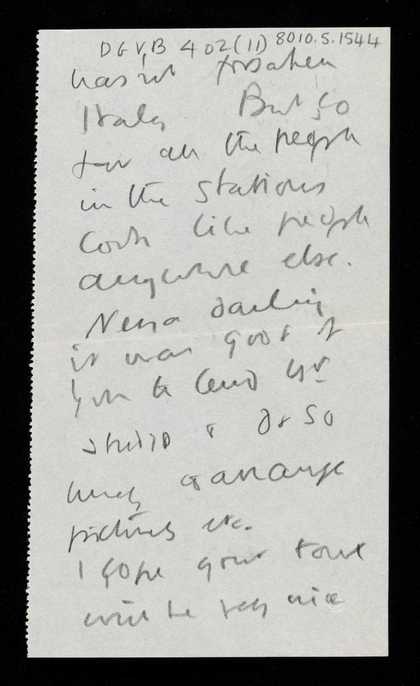 DG V,B 402(11) 8010.5.1544
hasn't forsaken
Italy But so
far all the people
in the stations
look like people
anywhere else.
Nessa darling
it was good of
you to lend yr
studio & do so
much & arrange
pictures etc.
I hope your
will be very nice